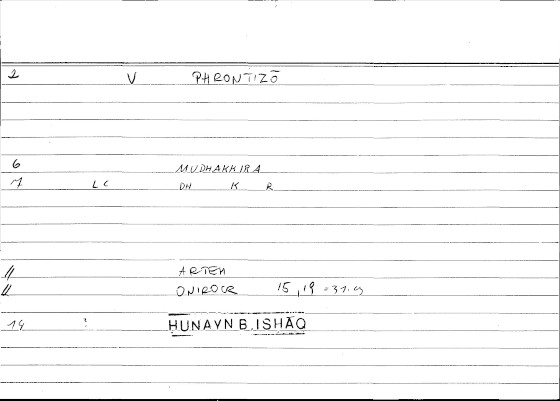 2 V PHRONTIZŌ
6 MUDHAKKIRA
7 LC DH K R
11 ARTEM
11 ONIROCR 15,19
14 : HUNAYN B. ISHĀQ